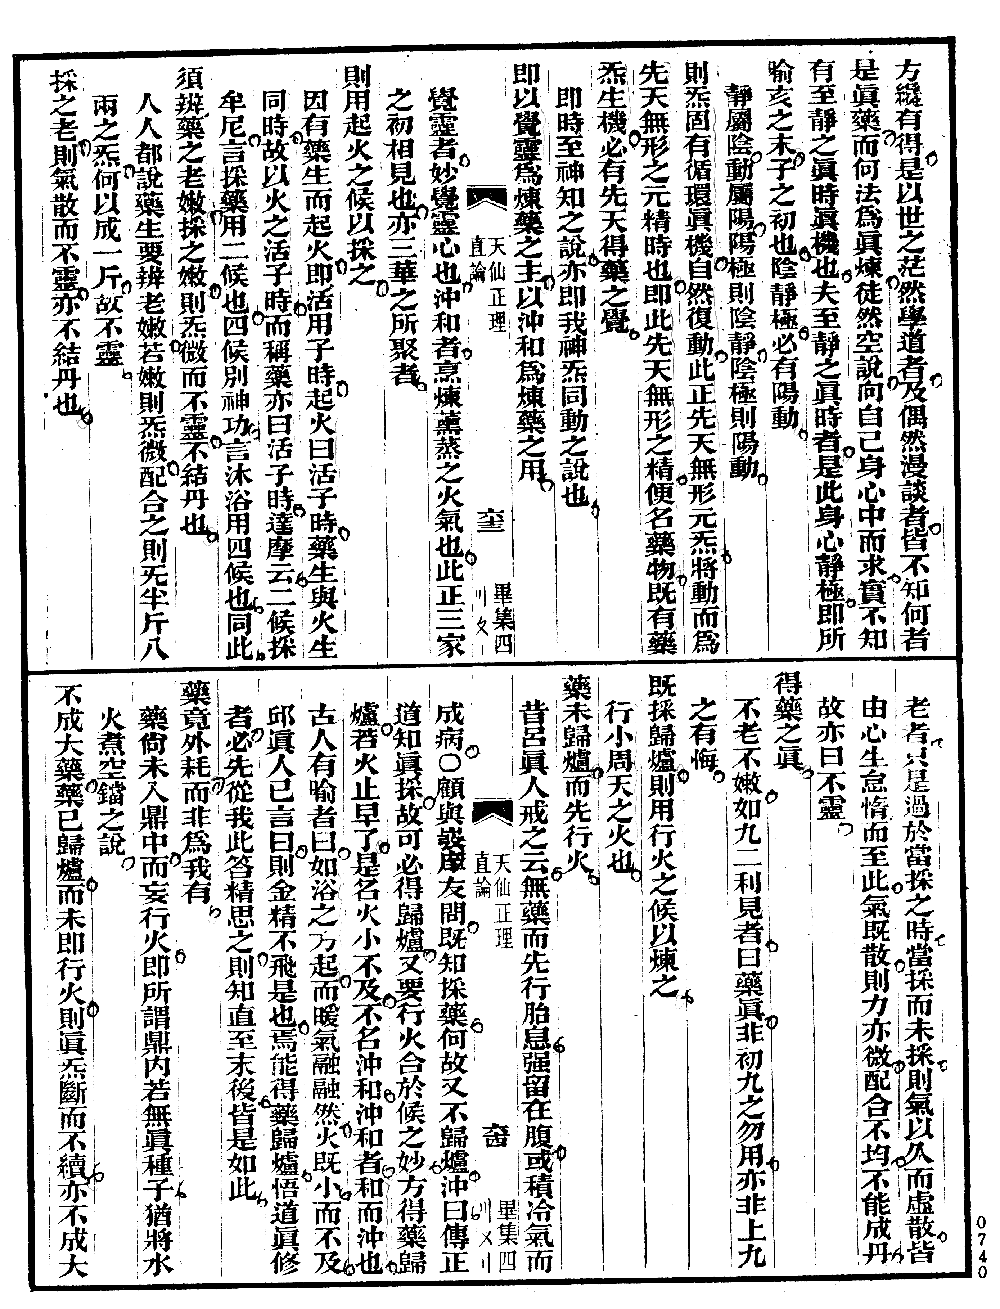 方纔有得是以世之茫然學道者及偶然漫談者皆不知何者
是眞藥而何法爲眞煉徒然空說向自己身心中而求實不知
有至靜之眞時眞機也夫至靜之眞時者是此身心靜極卽所
喻亥之末子之初也陰靜極必有陽動
靜屬陰動屬陽陽極則陰靜陰極則陽動
則炁固有循環眞機自然復動此正先天無形元炁將動而爲
先天無形之元精時也卽此先天無形之精便名藥物既有藥
炁生機必有先天得藥之覺
卽時至神知之說亦卽我神炁同動之說也
卽以覺靈爲煉藥之主以沖和爲煉藥之用
天仙正理
直論
畢集四
覺靈者妙覺靈心也沖和者烹煉薰蒸之火氣也此正三家
之初相見也亦三華之所聚者
則用起火之候以採之
因有藥生而起火卽活用子時起火曰活子時藥生與火生
同時故以火之活子時而稱藥亦曰活子時達摩云二候採
牟尼言採藥用二候也四候別神功言沐浴用四候也同此
須辨藥之老嫩採之嫩則炁微而不靈不結丹也
人人都說藥生要辨老嫩若嫩則炁微配合之則旡半斤八
兩之炁何以成一斤故不靈
採之老則氣散而不靈亦不結丹也
老者只是過於當採之時當採而未採則氣以久而虛散皆
由心生怠惰而至此氣既散則力亦微配合不均不能成丹
故亦曰不靈
得藥之眞
不老不嫩如九二利見者曰藥眞非初九之勿用亦非上九
之有悔
既採歸爐則用行火之候以煉之
行小周天之火也
藥未歸爐而先行火
昔呂眞人戒之云無藥而先行胎息强留在腹或積冷氣而
天仙正理
直論
畢集四
成病〇顧與弢庠友問既知採藥何故又不歸爐沖曰傳正
道知眞採故可必得歸爐又要行火合於候之妙方得藥歸
爐若火止早了是名火小不及不名沖和沖和者和而沖也
古人有喻者曰如浴之方起而暖氣融融然火既小而不及
邱眞人已言曰則金精不飛是也焉能得藥歸爐悟道眞修
者必先從我此答精思之則知直至末後皆是如此
藥竟外耗而非爲我有
藥尙未入鼎中而妄行火卽所謂鼎內若無眞種子猶將水
火煮空鐺之說
不成大藥藥已歸爐而未卽行火則眞炁斷而不續亦不成大
0740